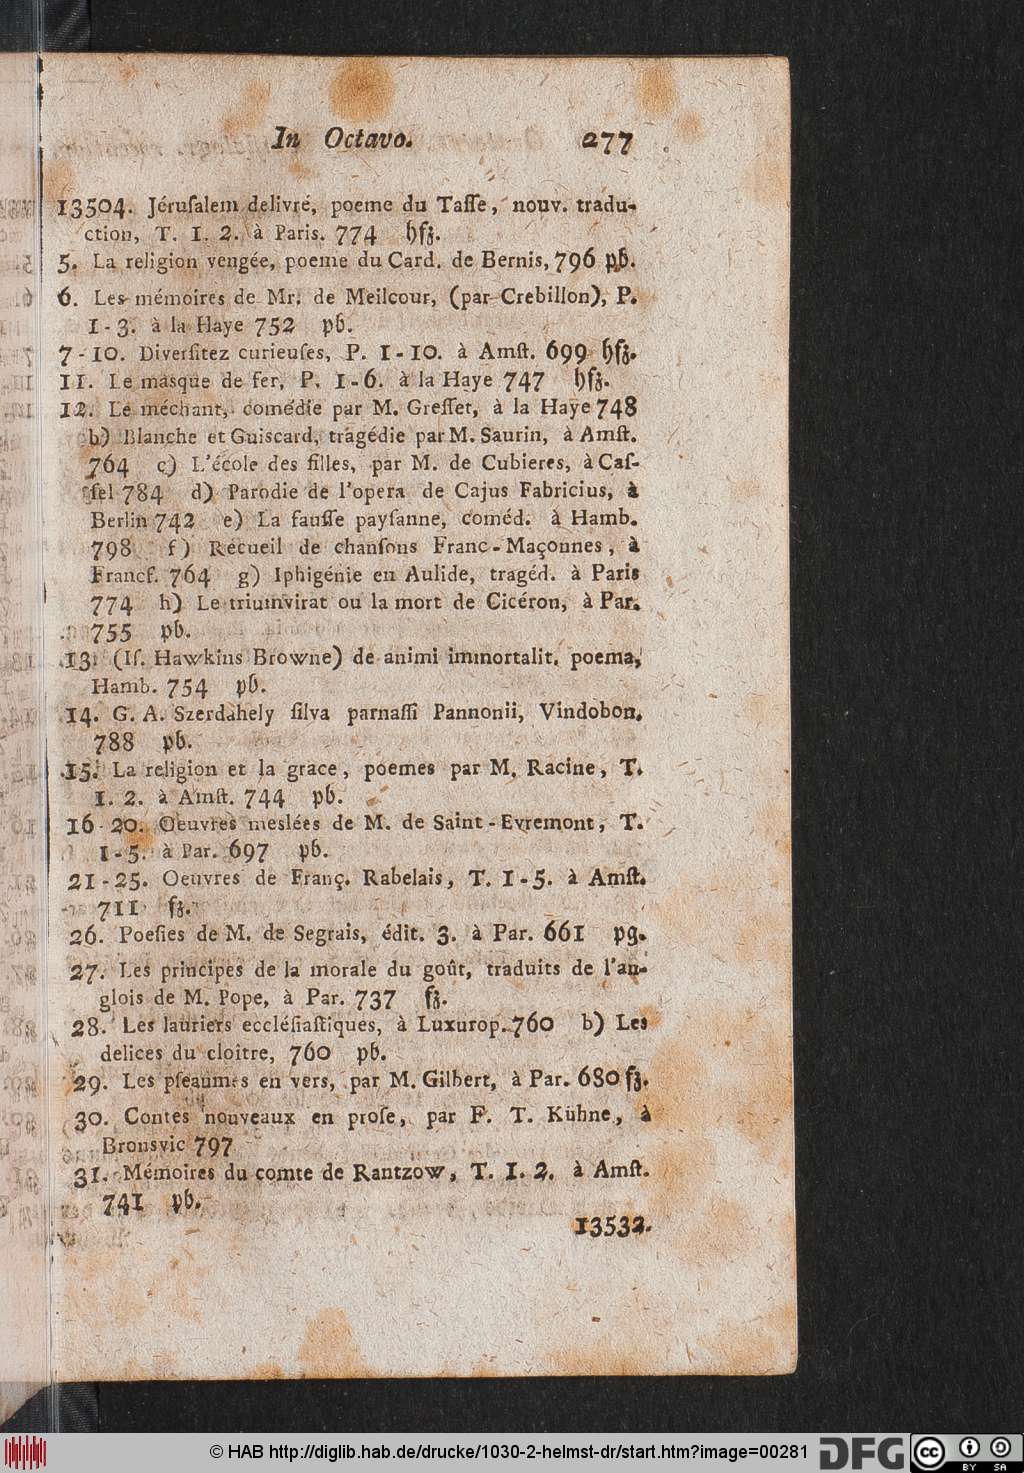 In Octavo. 277
13504. Jéruſalem delivré, poeme du Taſſe, nouv. tradu-
ction, T. 1. 2. à Paris. 774 hfz.
5. La religion vengée, poeme du Card. de Bernis, 796 pb.
6. Les mémoires de Mr. de Meilcour, (par Crebillon), P.
1-3. à la Haye 752 pb.
7-10. Diverſitez curieuſes, P. 1-10. à Amſt. 699 hfz.
11. Le masque de fer, P. 1-6. à la Haye 747 hfz.
12. Le méchant, comédie par M. Greſſet, à la Haye 748
b) Blanche et Guiscard, tragédie par M. Saurin, à Amſt.
764 c) L'école des filles, par M. de Cubieres, à Caſ-
ſel 784 d) Parodie de l'opera de Cajus Fabricius, à
Berlin 742 e) La fauſſe payſanne, coméd. à Hamb.
798 f) Récueil de chanſons Franc-Maçonnes, à
Francf. 764 g) Iphigénie en Aulide, tragéd. à Paris
774 h) Le triumvirat ou la mort de Cicéron, à Par.
755 pb.
13. (Iſ. Hawkins Browne) de animi immortalit. poema,
Hamb. 754 pb.
14. G. A. Szerdahely ſilva parnaſſi Pannonii, Vindobon.
788 pb.
15. La religion et la grace, poemes par M. Racine, T.
1. 2. à Amſt. 744 pb.
16-20. Oeuvres meslées de M. de Saint-Evremont, T.
1-5. à Par. 697 pb.
21-25. Oeuvres de Franç. Rabelais, T. 1-5. à Amſt.
711 fz.
26. Poeſies de M. de Segrais, édit. 3. à Par. 661 pg.
27. Les principes de la morale du goût, traduits de l'an-
glois de M. Pope, à Par. 737 fz.
28. Les lauriers eccléſiaſtiques, à Luxurop. 760 b) Les
delices du cloître, 760 pb.
29. Les pſeaumes en vers, par M. Gilbert, à Par. 680 fz.
30. Contes nouveaux en proſe, par F. T. Kühne, à
Bronsvic 797
31. Mémoires du comte de Rantzow, T. 1. 2. à Amſt.
741 pb.
13532.
© HAB http://diglib.hab.de/drucke/1030-2-helmst-dr/start.htm?image=00281 DFG cc BY SA